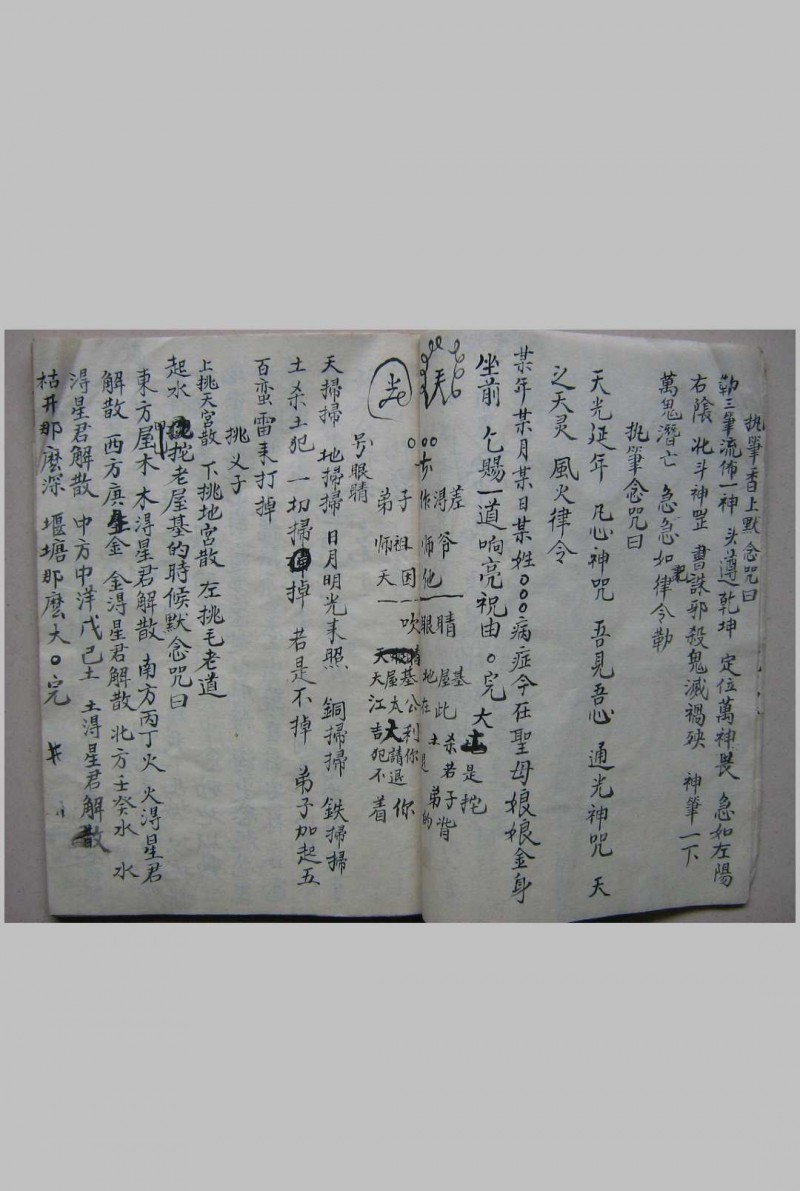 执筆香上默念咒曰
勅三筆流佈一神 头遵乾坤 定位萬神畏 急如左陽
右陰 北斗神罡 書誅邪殺鬼滅禍殃 神筆一下
萬鬼潛亡 急急如律令勒
执筆念咒曰
天光延年 凡心神咒 吾見吾心 通光神咒 天
之天灵 風火律令
某年某月某日某姓〇〇〇病症今在聖母娘娘金身
坐前 乞賜一道响亮祝由 〇完大
是挖
差爷 睛 屋基此
淂师他 眼 地在 土杀若子
作 弟子背的
子祖因 吹
弟师天
大屋基公利你
江太大請退你
吉犯不着
号眼睛
天掃掃 地掃掃 日月明光来照 銅掃掃 鉄掃掃
土杀土犯 一切掃掉 若是不掉 弟子加起五
百蛮雷来打掉
挑义子
上挑天宫散 下挑地宫散 左挑毛老道
起水 挖老屋基的時候默念咒曰
東方屋木 木淂星君解散 南方丙丁火 火淂星君
解散 西方庚金 金淂星君解散 北方壬癸水 水
淂星君解散 中方中洋戊己土 土淂星君解散
枯井那麽深 堰塘那麽大 〇完